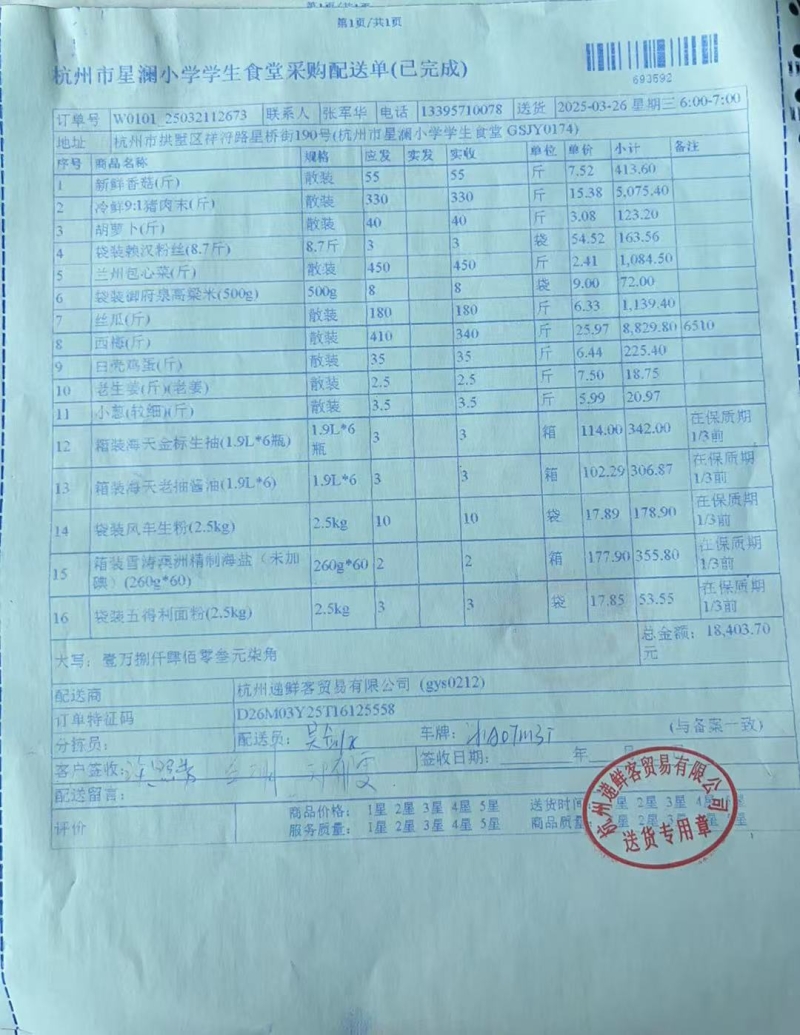 第1页/共1页
杭州市星澜小学学生食堂采购配送单(已完成)
693592
订单号 W0101_25032112673 联系人 张军华 电话 13395710078 送货 2025-03-26 星期三 6:00-7:00
地址 杭州市拱墅区祥符路星桥街190号(杭州市星澜小学学生食堂 GSJY0174)
序号 商品名称 规格 应发 实发 实收 单位 单价 小计 备注
1 新鲜香菇(斤) 散装 55 55 斤 7.52 413.60
2 冷鲜9:1猪肉末(斤) 散装 330 330 斤 15.38 5,075.40
3 胡萝卜(斤) 散装 40 40 斤 3.08 123.20
4 袋装赖汉粉丝(8.7斤) 8.7斤 3 3 袋 54.52 163.56
5 兰州包心菜(斤) 散装 450 450 斤 2.41 1,084.50
6 袋装御府泉高粱米(500g) 500g 8 8 袋 9.00 72.00
7 丝瓜(斤) 散装 180 180 斤 6.33 1,139.40
8 西梅(斤) 散装 410 340 斤 25.97 8,829.80 6510
9 白壳鸡蛋(斤) 散装 35 35 斤 6.44 225.40
10 老生姜(斤)(老姜) 散装 2.5 2.5 斤 7.50 18.75
11 小葱(较细)(斤) 散装 3.5 3.5 斤 5.99 20.97
12 箱装海天金标生抽(1.9L*6瓶) 1.9L*6瓶 3 3 箱 114.00 342.00 在保质期1/3前
13 箱装海天老抽酱油(1.9L*6) 1.9L*6 3 3 箱 102.29 306.87 在保质期1/3前
14 袋装风车生粉(2.5kg) 2.5kg 10 10 袋 17.89 178.90 在保质期1/3前
15 箱装雪涛澳洲精制海盐（未加碘）(260g*60) 260g*60 2 2 箱 177.90 355.80 在保质期1/3前
16 袋装五得利面粉(2.5kg) 2.5kg 3 3 袋 17.85 53.55 在保质期1/3前
大写：壹万捌仟肆佰零叁元柒角 总金额：18,403.70元
配送商 杭州递鲜客贸易有限公司 (gys0212)
订单特征码 D26M03Y25T16125558
分拣员： 配送员： 车牌： (与备案一致)
客户签收： 签收日期： 年 月
配送留言：
评价 商品价格： 1星 2星 3星 4星 5星 送货时间 星 2星 3星 4星
服务质量： 1星 2星 3星 4星 5星 商品质量 星
杭州递鲜客贸易有限公司
送货专用章